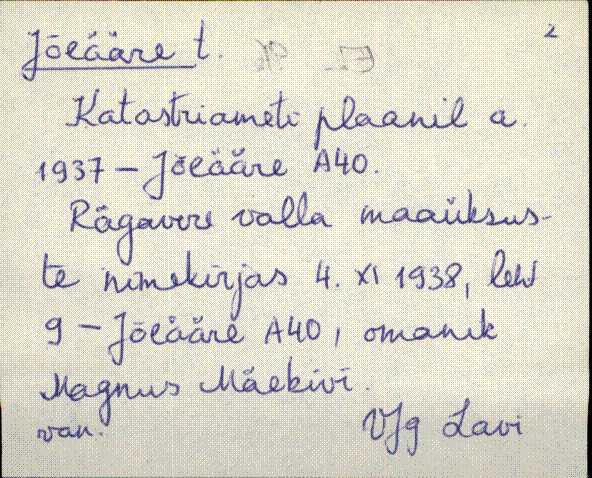 2
Jõeääre t.
Katastriameti plaanil a.
1937 – Jõeääre A40.
Rägavere valla maaüksus-
te nimekirjas 4. XI 1938, leht
9 – Jõeääre A40, omanik
Magnus Mäekivi.
van. VJg Lavi